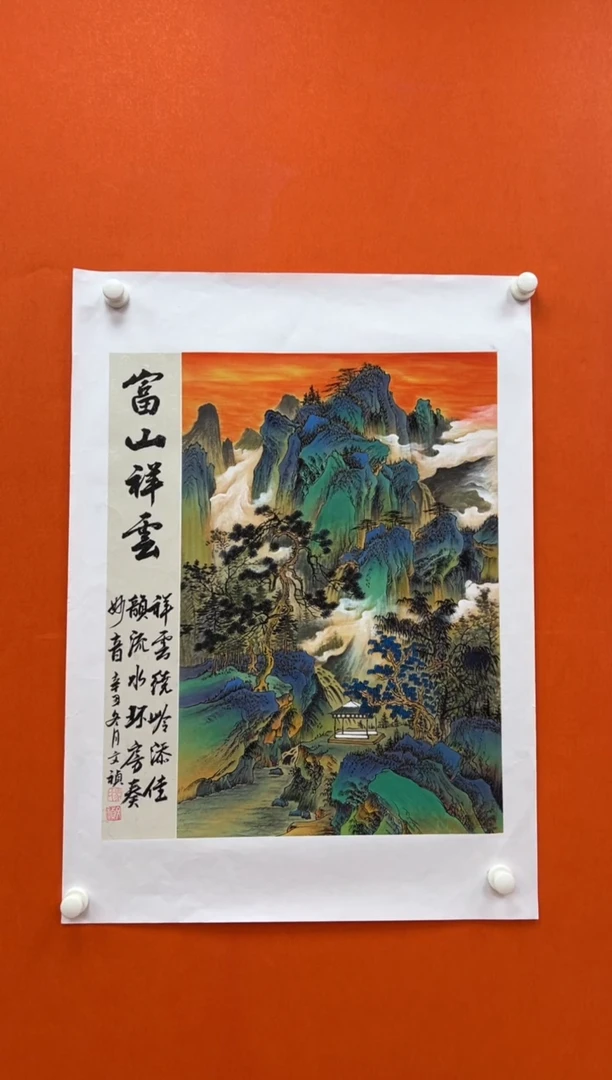 富山祥雲
祥雲繞岭添佳
韻流水环房奏
妙音 辛丑冬月文禎